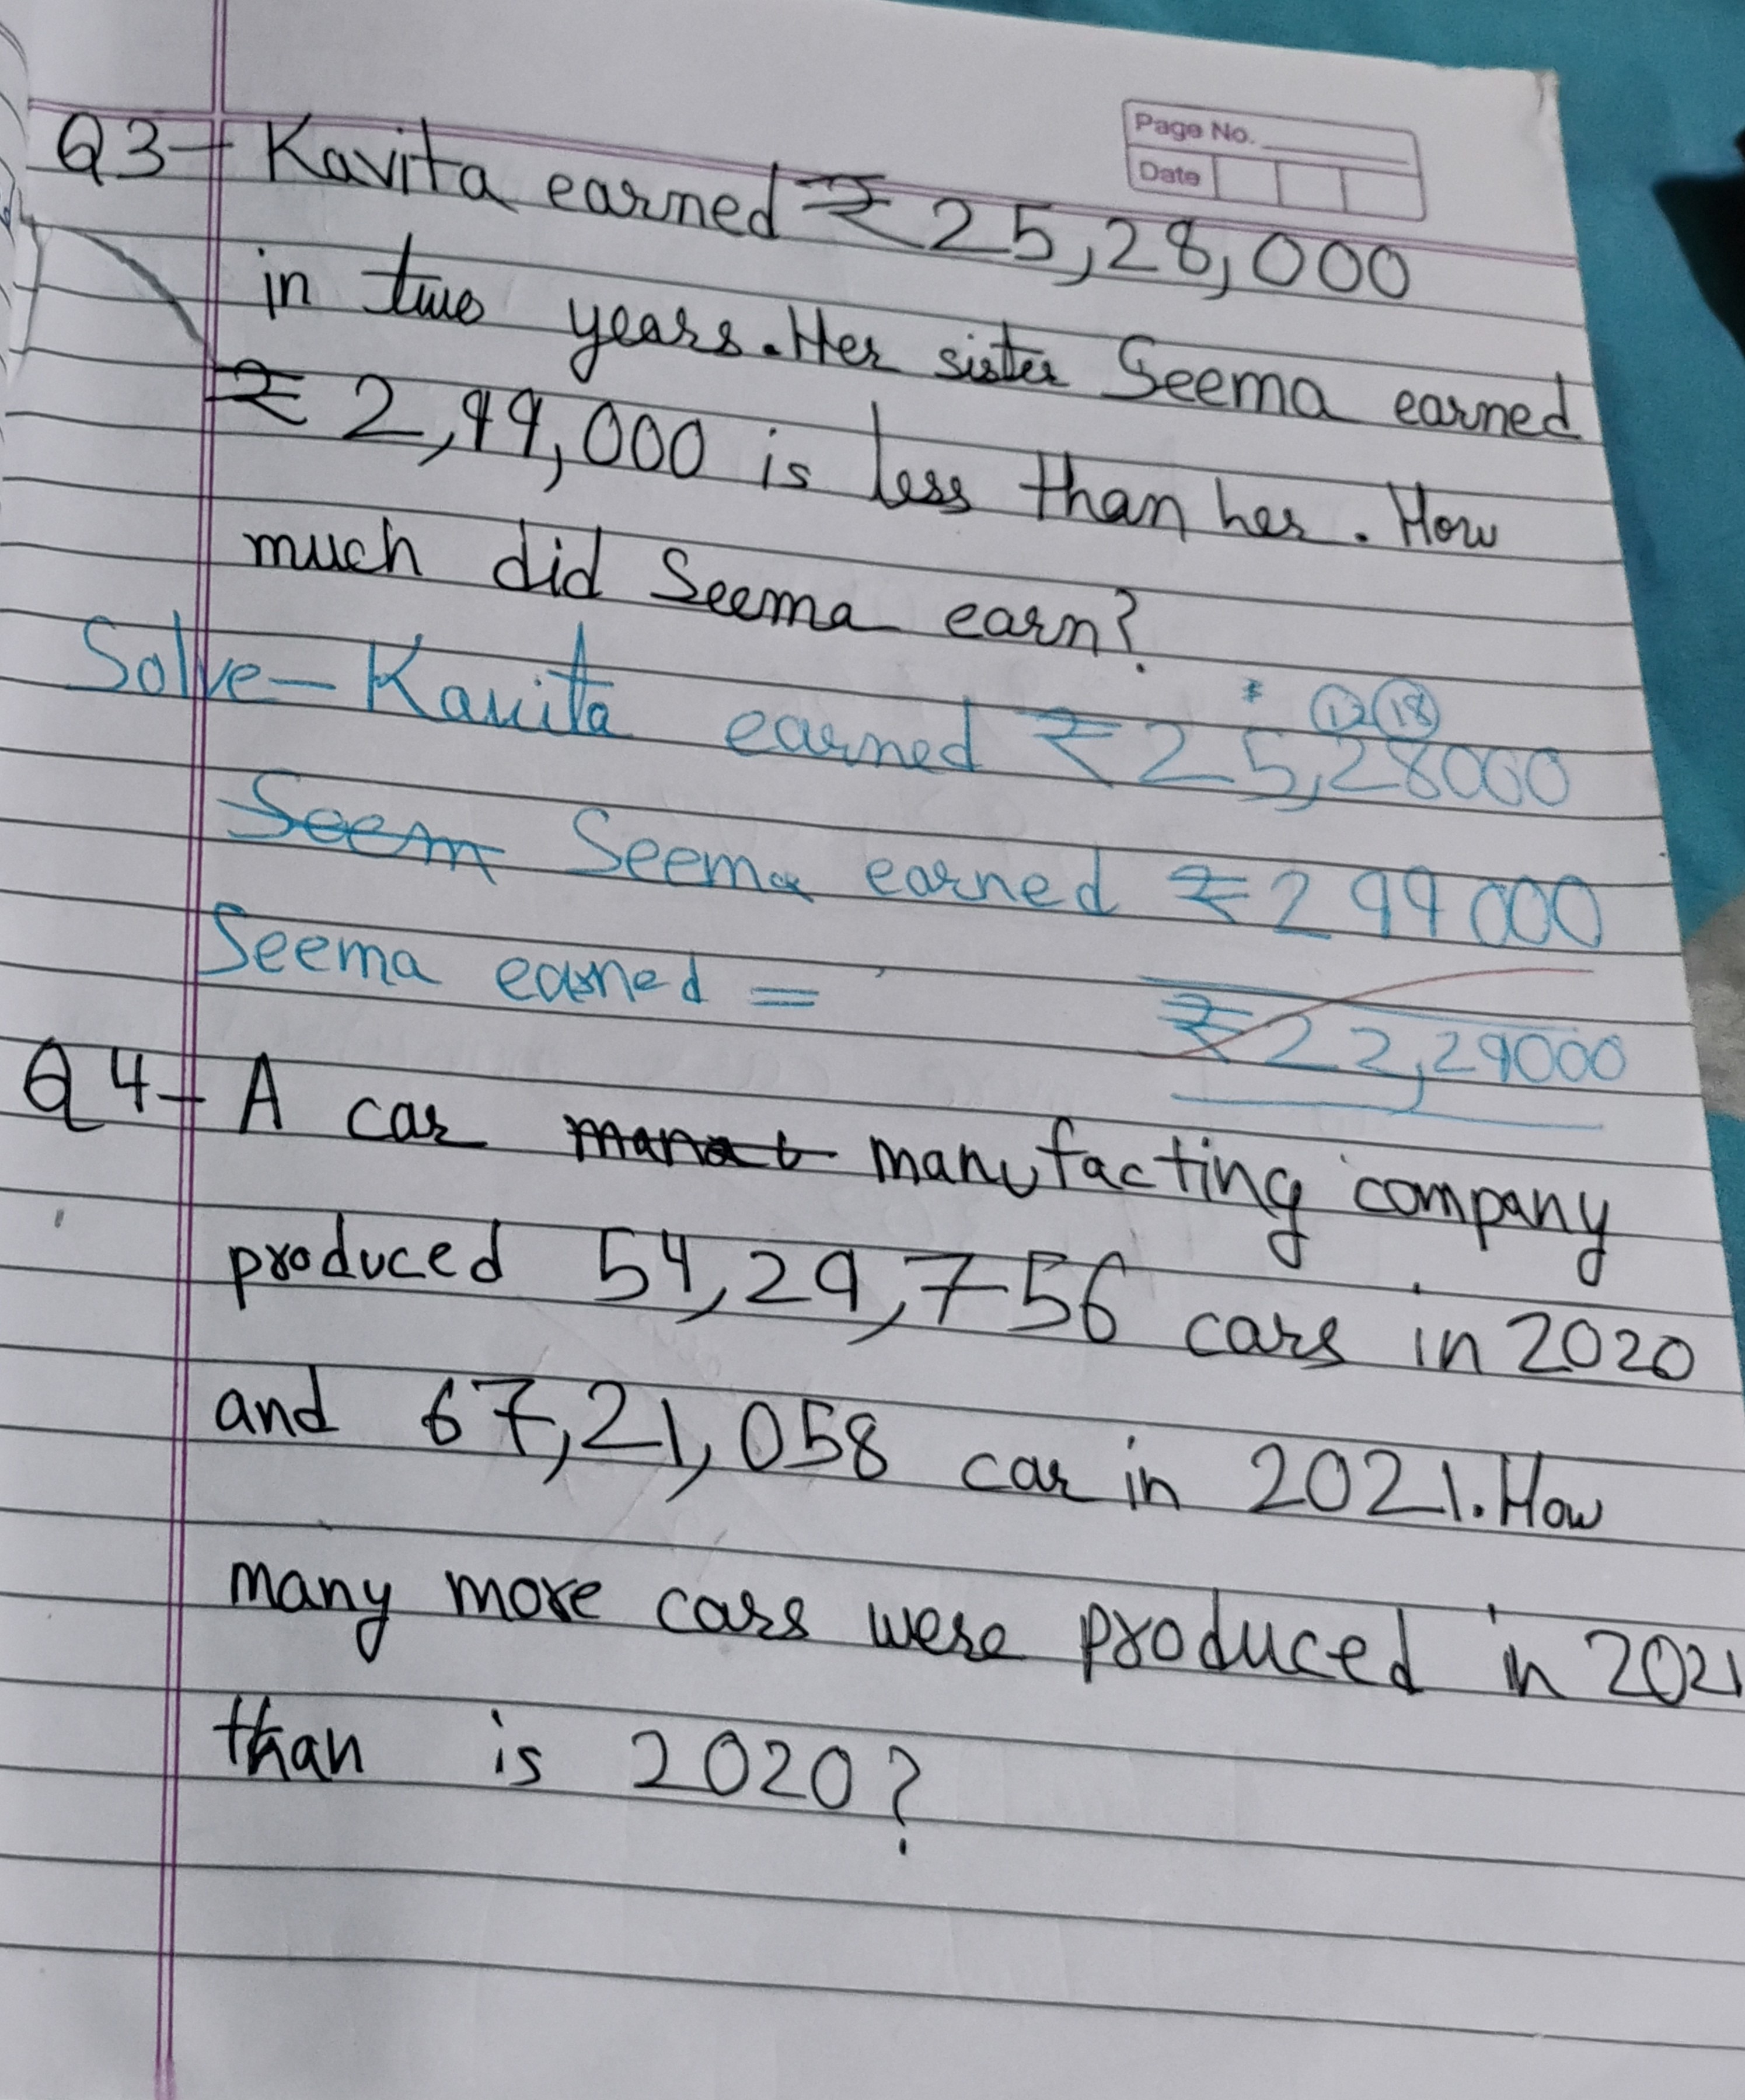 Page No.
Date
Q3- Kavita earned ₹25,28,000
in two years. Her sister Seema earned
₹2,99,000 is less than her. How
much did Seema earn?
12 18
Solve- Kavita earned ₹25,28000
Seem Seema earned ₹299000
Seema earned = ₹22,29000
Q4- A car manufacting company
produced 54,29,756 cars in 2020
and 67,21,058 car in 2021. How
many more cars were produced in 2021
than is 2020?